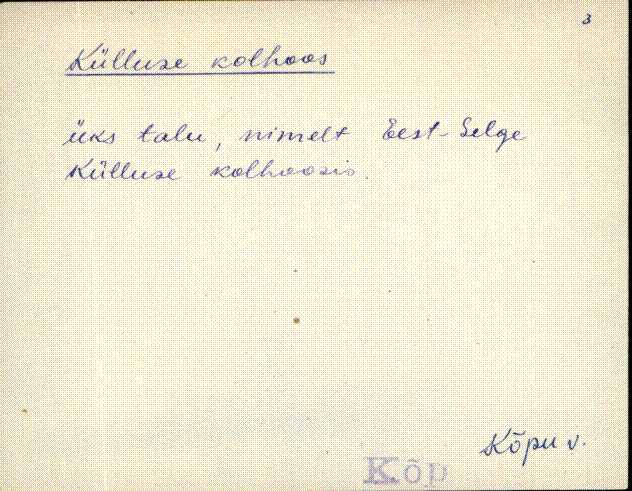 3
Külluse kolhoos
üks talu, nimelt Eest-Selge
Külluse kolhoosis.
Kõpu v.
Kõp